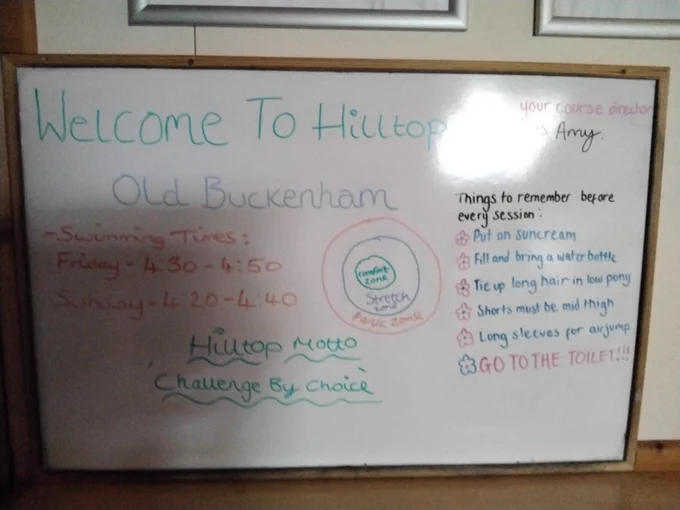 Welcome To Hilltop
your course director
is Amy.
Old Buckenham
- Swimming Times:
Friday - 4:30 - 4:50
Sunday - 4:20 - 4:40
comfort
zone
Stretch
zone
Panic Zone
Hilltop Motto
'Challenge By Choice'
Things to remember before
every session:
Put on suncream
Fill and bring a water bottle
Tie up long hair in low pony
Shorts must be mid thigh
Long sleeves for airjump
GO TO THE TOILET!!!